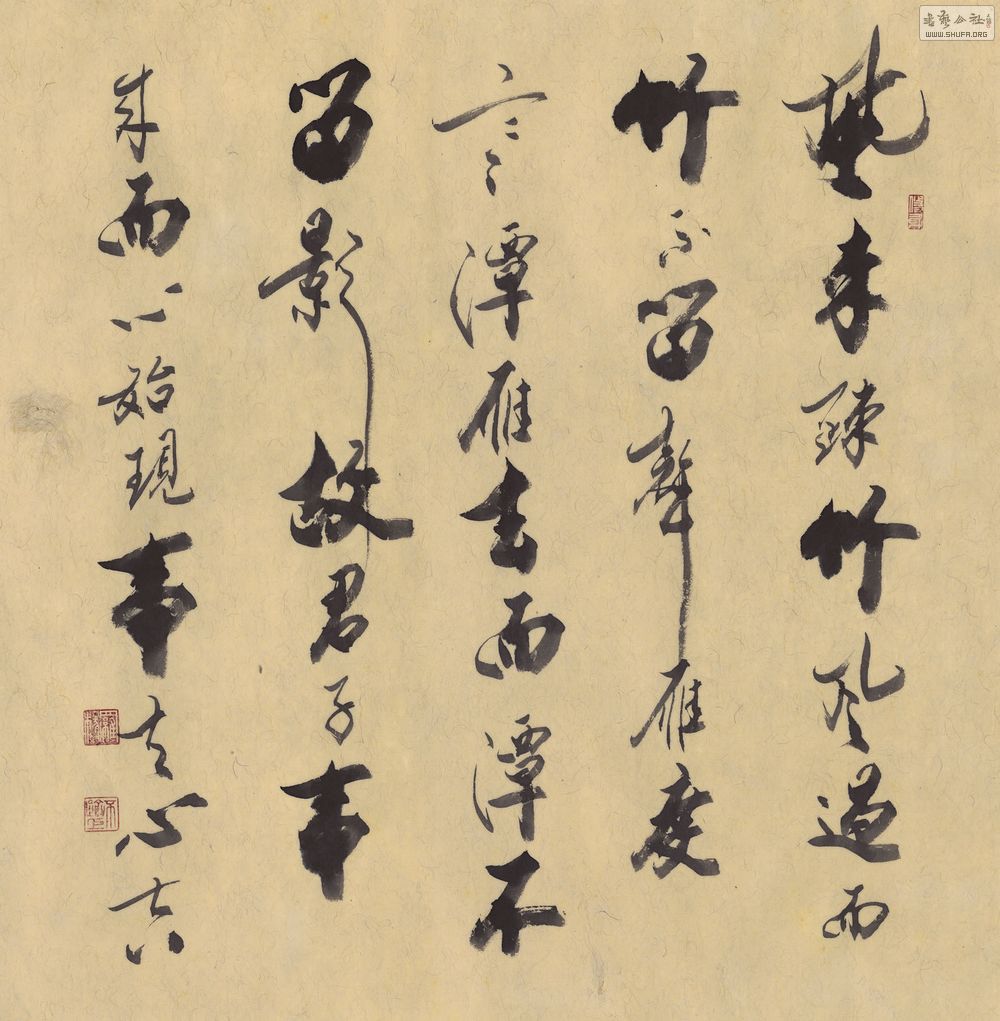 来疎竹风過而
竹不留聲雁度
寒潭雁去而潭不
留影故君子事
来而心始現事去心
書藝公社
WWW.SHUFA.ORG